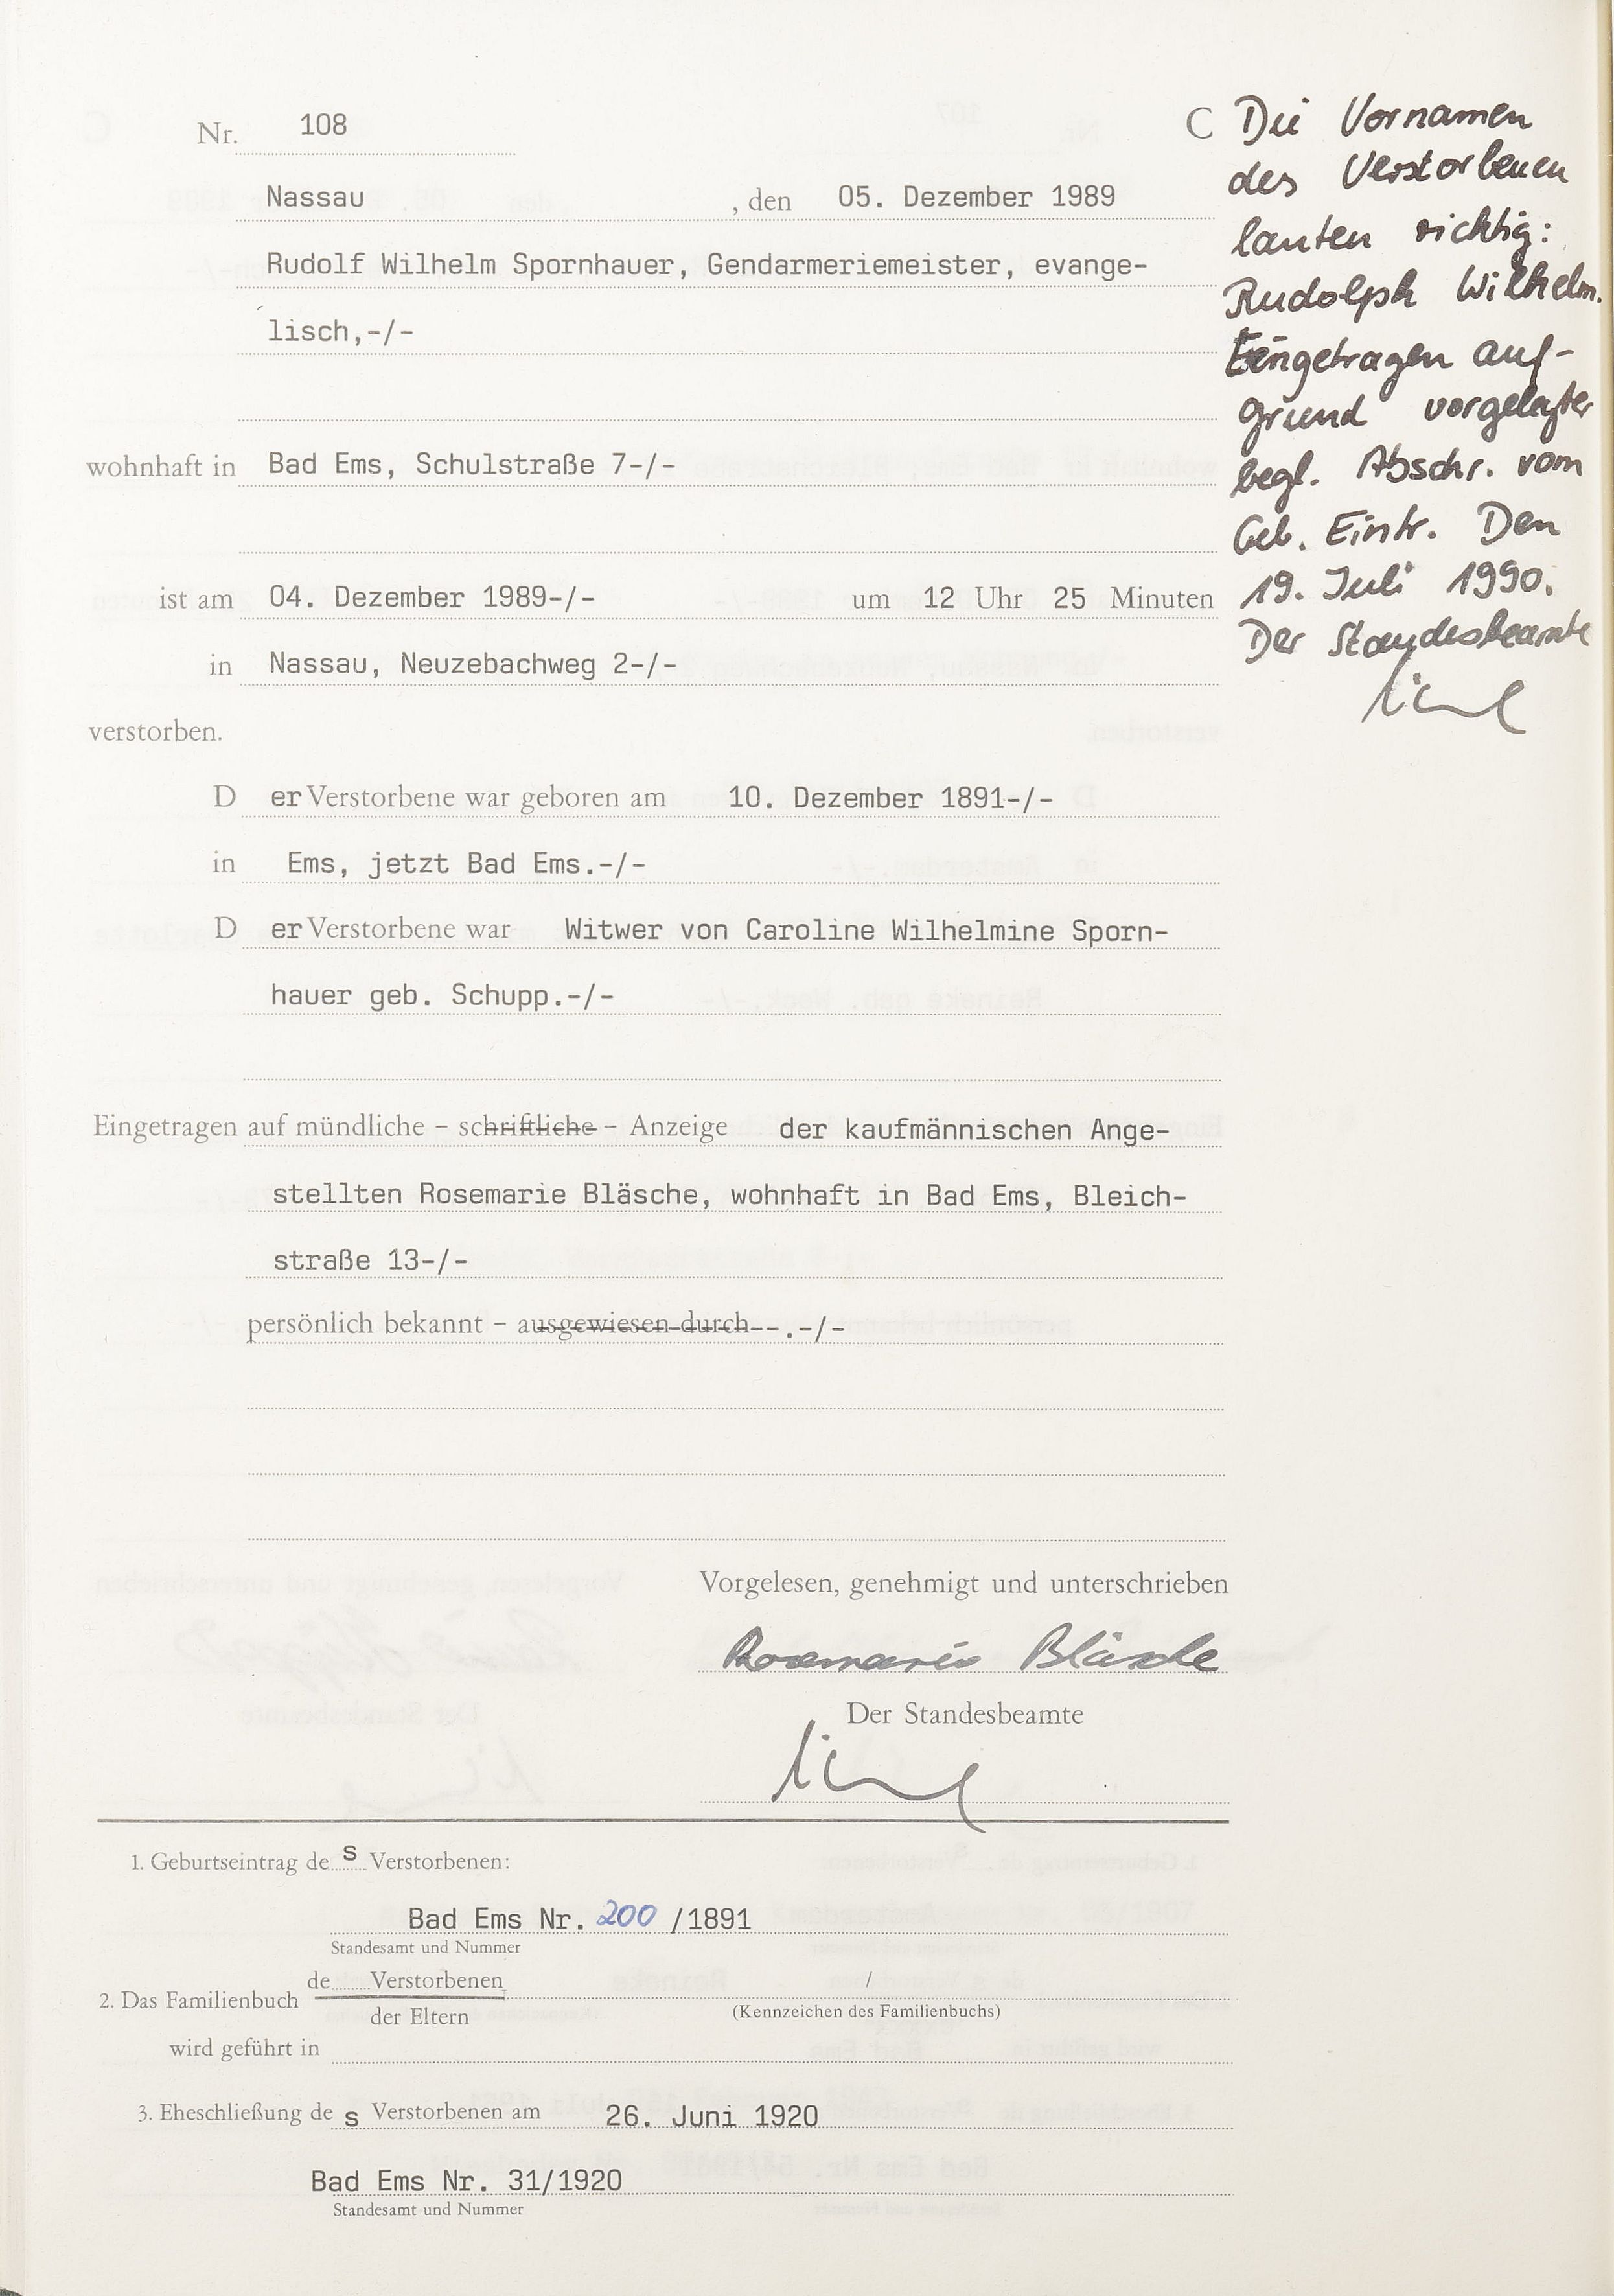 Nr. 108
Nassau , den 05. Dezember 1989
Rudolf Wilhelm Spornhauer, Gendarmeriemeister, evange-
lisch,-/-
wohnhaft in Bad Ems, Schulstraße 7-/-
ist am 04. Dezember 1989-/- um 12 Uhr 25 Minuten
in Nassau, Neuzebachweg 2-/-
verstorben.
D er Verstorbene war geboren am 10. Dezember 1891-/-
in Ems, jetzt Bad Ems.-/-
D er Verstorbene war Witwer von Caroline Wilhelmine Sporn-
hauer geb. Schupp.-/-
Eingetragen auf mündliche – schriftliche – Anzeige der kaufmännischen Ange-
stellten Rosemarie Bläsche, wohnhaft in Bad Ems, Bleich-
straße 13-/-
persönlich bekannt – ausgewiesen durch--.-/-
Vorgelesen, genehmigt und unterschrieben
Rosemarie Bläsche
Der Standesbeamte
C Die Vornamen
des Verstorbenen
lauten richtig:
Rudolph Wilhelm.
Eingetragen auf-
grund vorgelegter
begl. Abschr. vom
Geb. Eintr. Den
19. Juli 1990.
Der Standesbeamte
1. Geburtseintrag de s Verstorbenen:
Bad Ems Nr. 200 /1891
Standesamt und Nummer
de Verstorbenen /
2. Das Familienbuch
der Eltern (Kennzeichen des Familienbuchs)
wird geführt in
3. Eheschließung de s Verstorbenen am 26. Juni 1920
Bad Ems Nr. 31/1920
Standesamt und Nummer